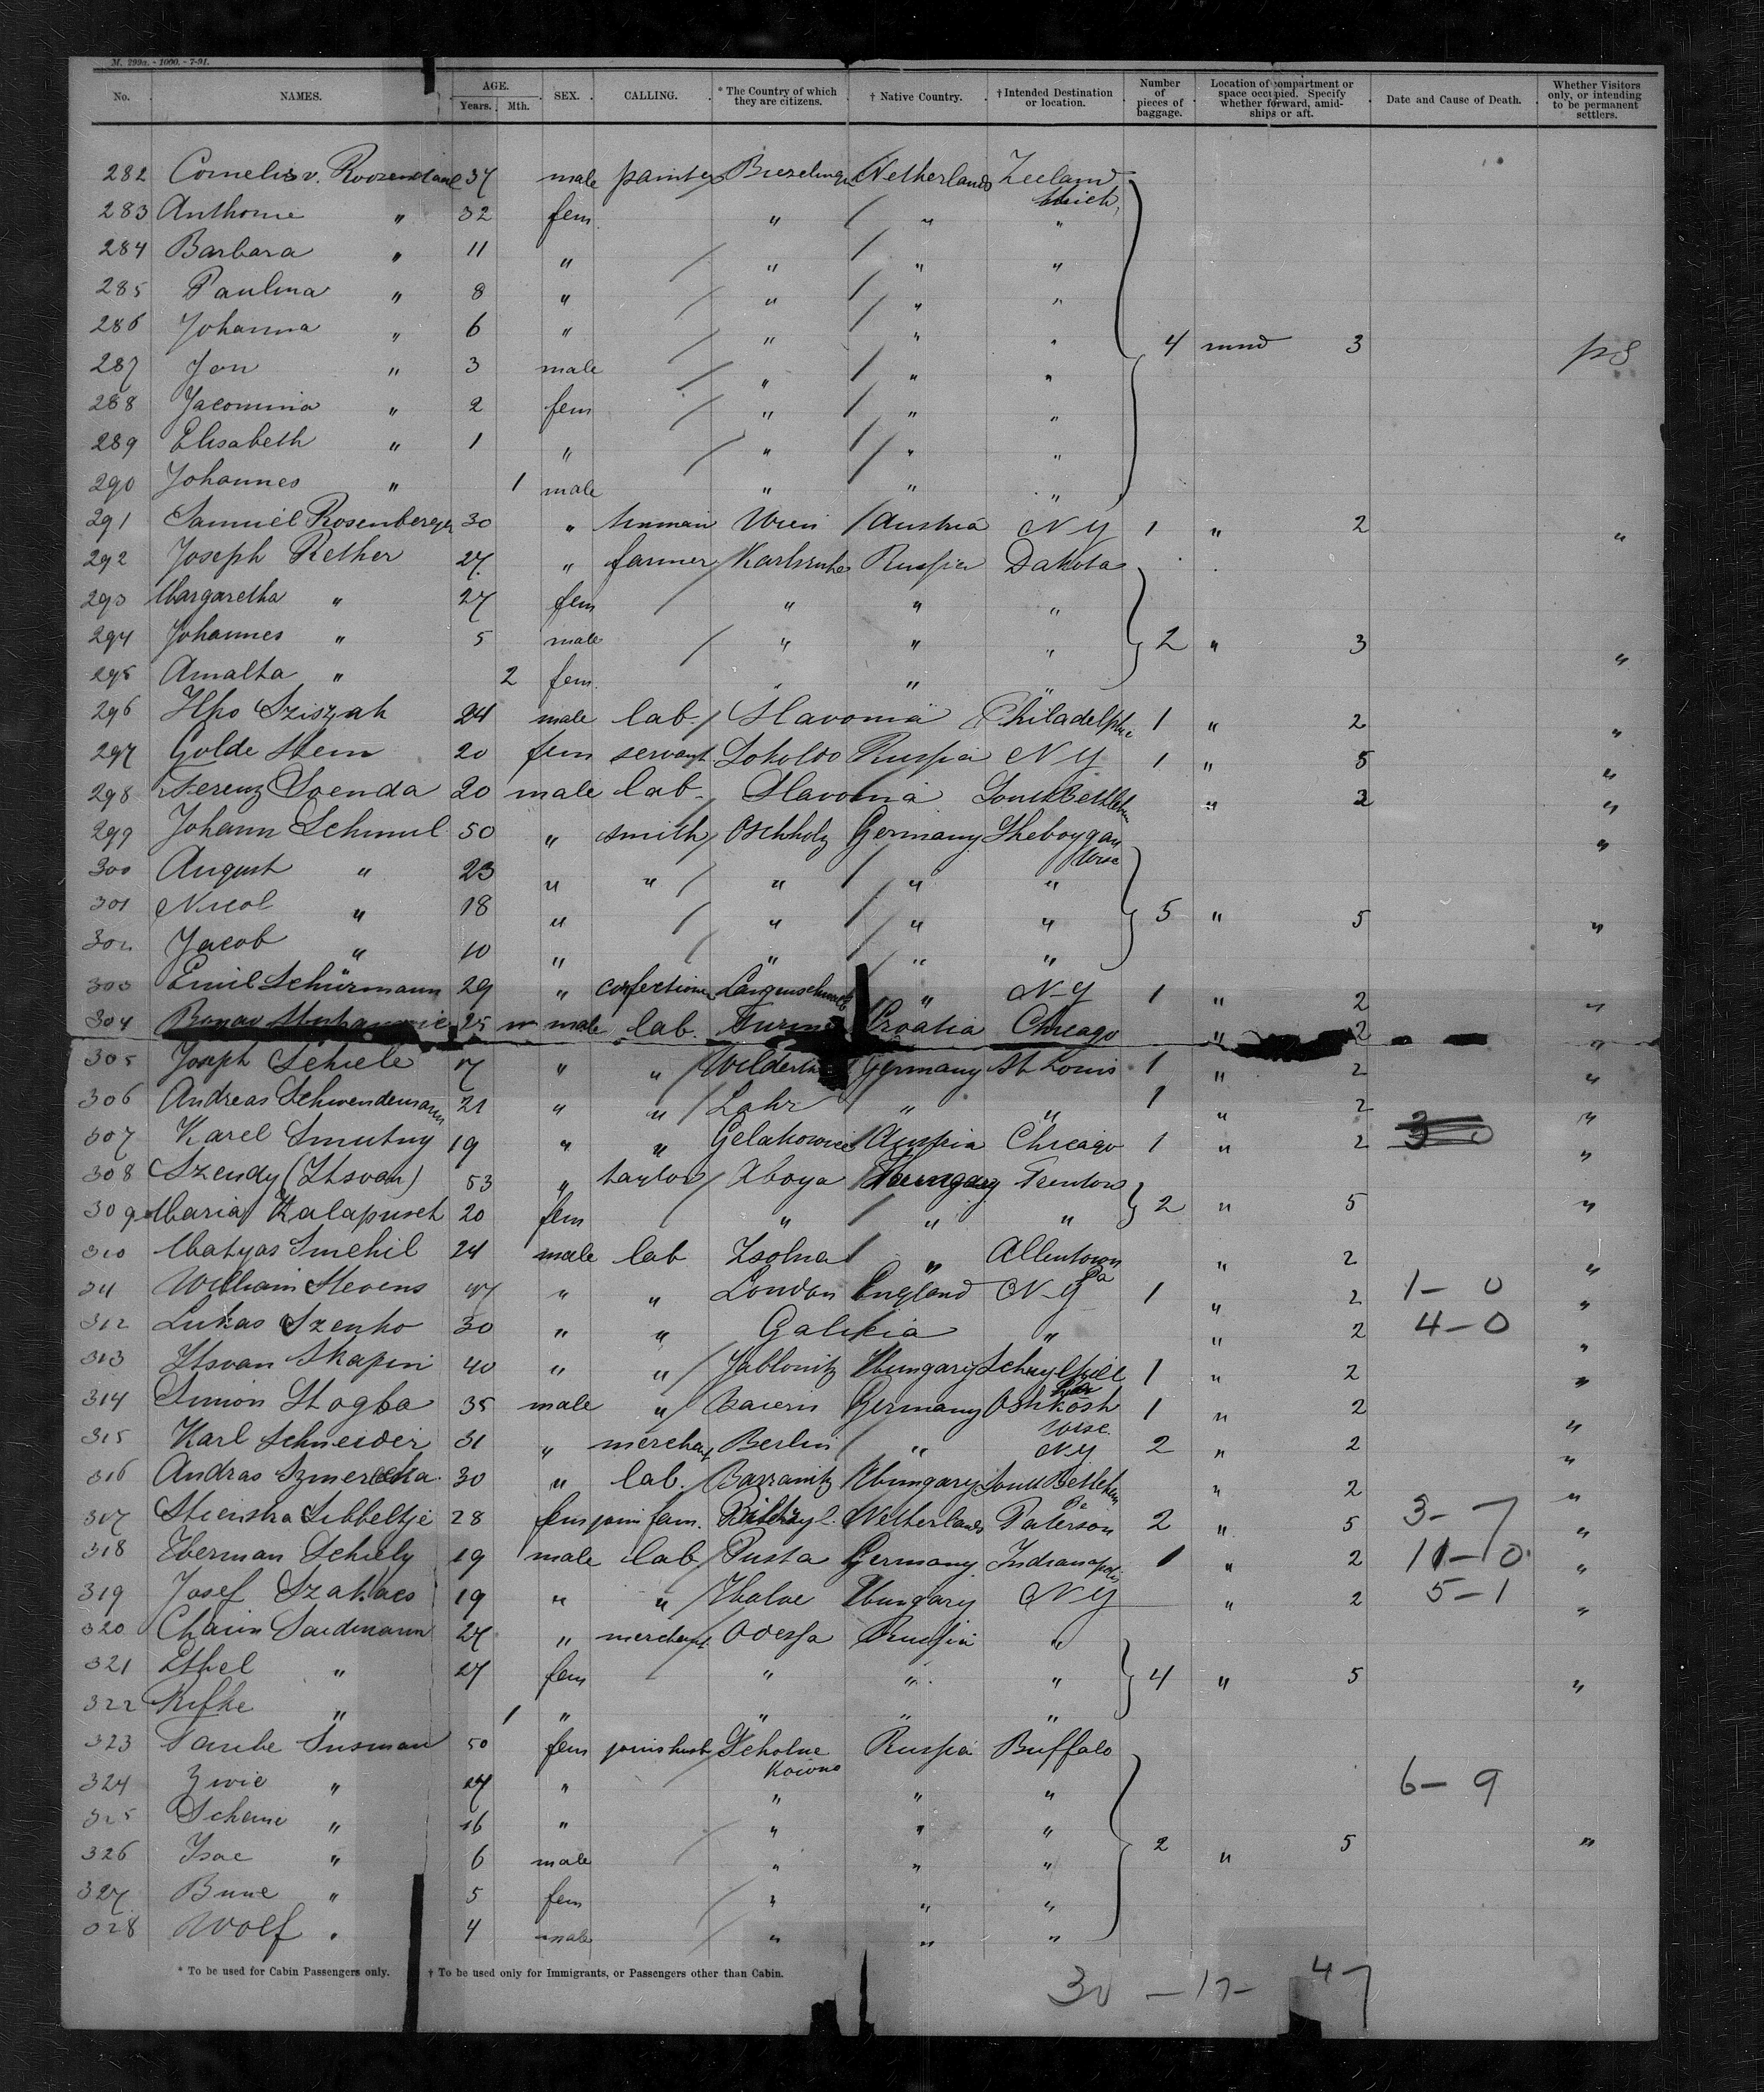 M. 299a. - 1000. - 7-91.
No. NAMES. AGE. Years. Mth. SEX. CALLING. * The Country of which they are citizens. † Native Country. † Intended Destination or location. Number of pieces of baggage. Location of compartment or space occupied. Specify whether forward, amidships or aft. Date and Cause of Death. Whether Visitors only, or intending to be permanent settlers.
282 Cornelis v. Roozendaal 37 male painter Biezelinge Netherlands Zeeland
Mich.
283 Anthonie " 32 fem. " " "
284 Barbara " 11 " " " "
285 Paulina " 8 " " " "
286 Johanna " 6 " " " " 4 3 ps
287 Jan " 3 male " " "
288 Jacomina " 2 fem " " "
289 Elisabeth " 1 " " " "
290 Johannes " 1 male " " "
291 Samuel Rosenberger 30 " Wien Austria N Y 1 " 2 "
292 Joseph Rether 27 " farmer Karlsruhe Russia Dakota
293 Margaretha " 27 fem " " "
294 Johannes " 5 male " " " 2 " 3 "
295 Amalia " 2 fem. " " "
296 Sziszak 24 male lab. Slavonia Philadelphia 1 " 2 "
297 Golde Stein 20 fem servant Sokoldo Russia N Y 1 " 5 "
298 Ferenz Soenda 20 male lab. Slavonia South Bethlehem " 2 "
299 Johann Schmul 50 " smith Oschholz Germany Sheboygan "
Wisc
300 August " 23 " " " " "
301 Nicol " 18 " " " " 5 " 5 "
302 Jacob " 10 " " " "
303 Emil Schürmann 29 " confectioner " N Y 1 " 2 "
304 25 male lab. Croatia Chicago " 2 "
305 Joseph Schiele 17 " " Germany St Louis 1 " 2 "
306 Andreas Schwendemann 21 " " Lahr " " 1 " 2 "
307 Karel Smutny 19 " " Gelakowice Austria Chicago 1 " 2 "
308 Szendy (Istvan) 53 " taylor Aboya Hungary Trenton
309 Maria Kalapusch 20 fem " " " 2 " 5 "
310 Matyas Smehil 24 male lab Zsolna " Allentown " 2 "
Pa
311 William Stevens 47 " " London England N Y 1 " 2 1 - 0 "
312 Lukas Szenko 30 " " Galizia " " 2 4 - 0 "
313 Istvan Skapin 40 " " Jablonitz Hungary Schuylkill 1 " 2 "
314 Simon Stogba 35 male " Baiern Germany Oshkosh 1 " 2 "
Wisc.
315 Karl Schneider 31 " merchant Berlin " N Y 2 " 2 "
316 Andras 30 " lab. Bazzanitz Hungary South Bethlehem " 2 "
Pa
317 Stienstra Sibbeltje 28 fem join fam. Netherlands Paterson 2 " 5 3 - 7 "
318 Herman Schiely 19 male lab. Pusta Germany Indianapolis 1 " 2 11 - 0 "
319 Josef Szakacs 19 " " Hungary N Y " 2 5 - 1 "
320 Chaim Saidmann 27 " merchant Odessa Russia "
321 Ethel " 27 fem " " " 4 " 5 "
322 Rifke " 1 " " " "
323 Taube Susman 50 fem joins husb Russia Buffalo
Kowno
324 Zwie " 17 " " " " 6 - 9
325 Scheine " 16 " " " "
326 Isac " 6 male " " " 2 " 5 "
327 Bune " 5 fem " " "
328 Wolf " 4 male " " "
* To be used for Cabin Passengers only. † To be used only for Immigrants, or Passengers other than Cabin.
30 - 17 - 47